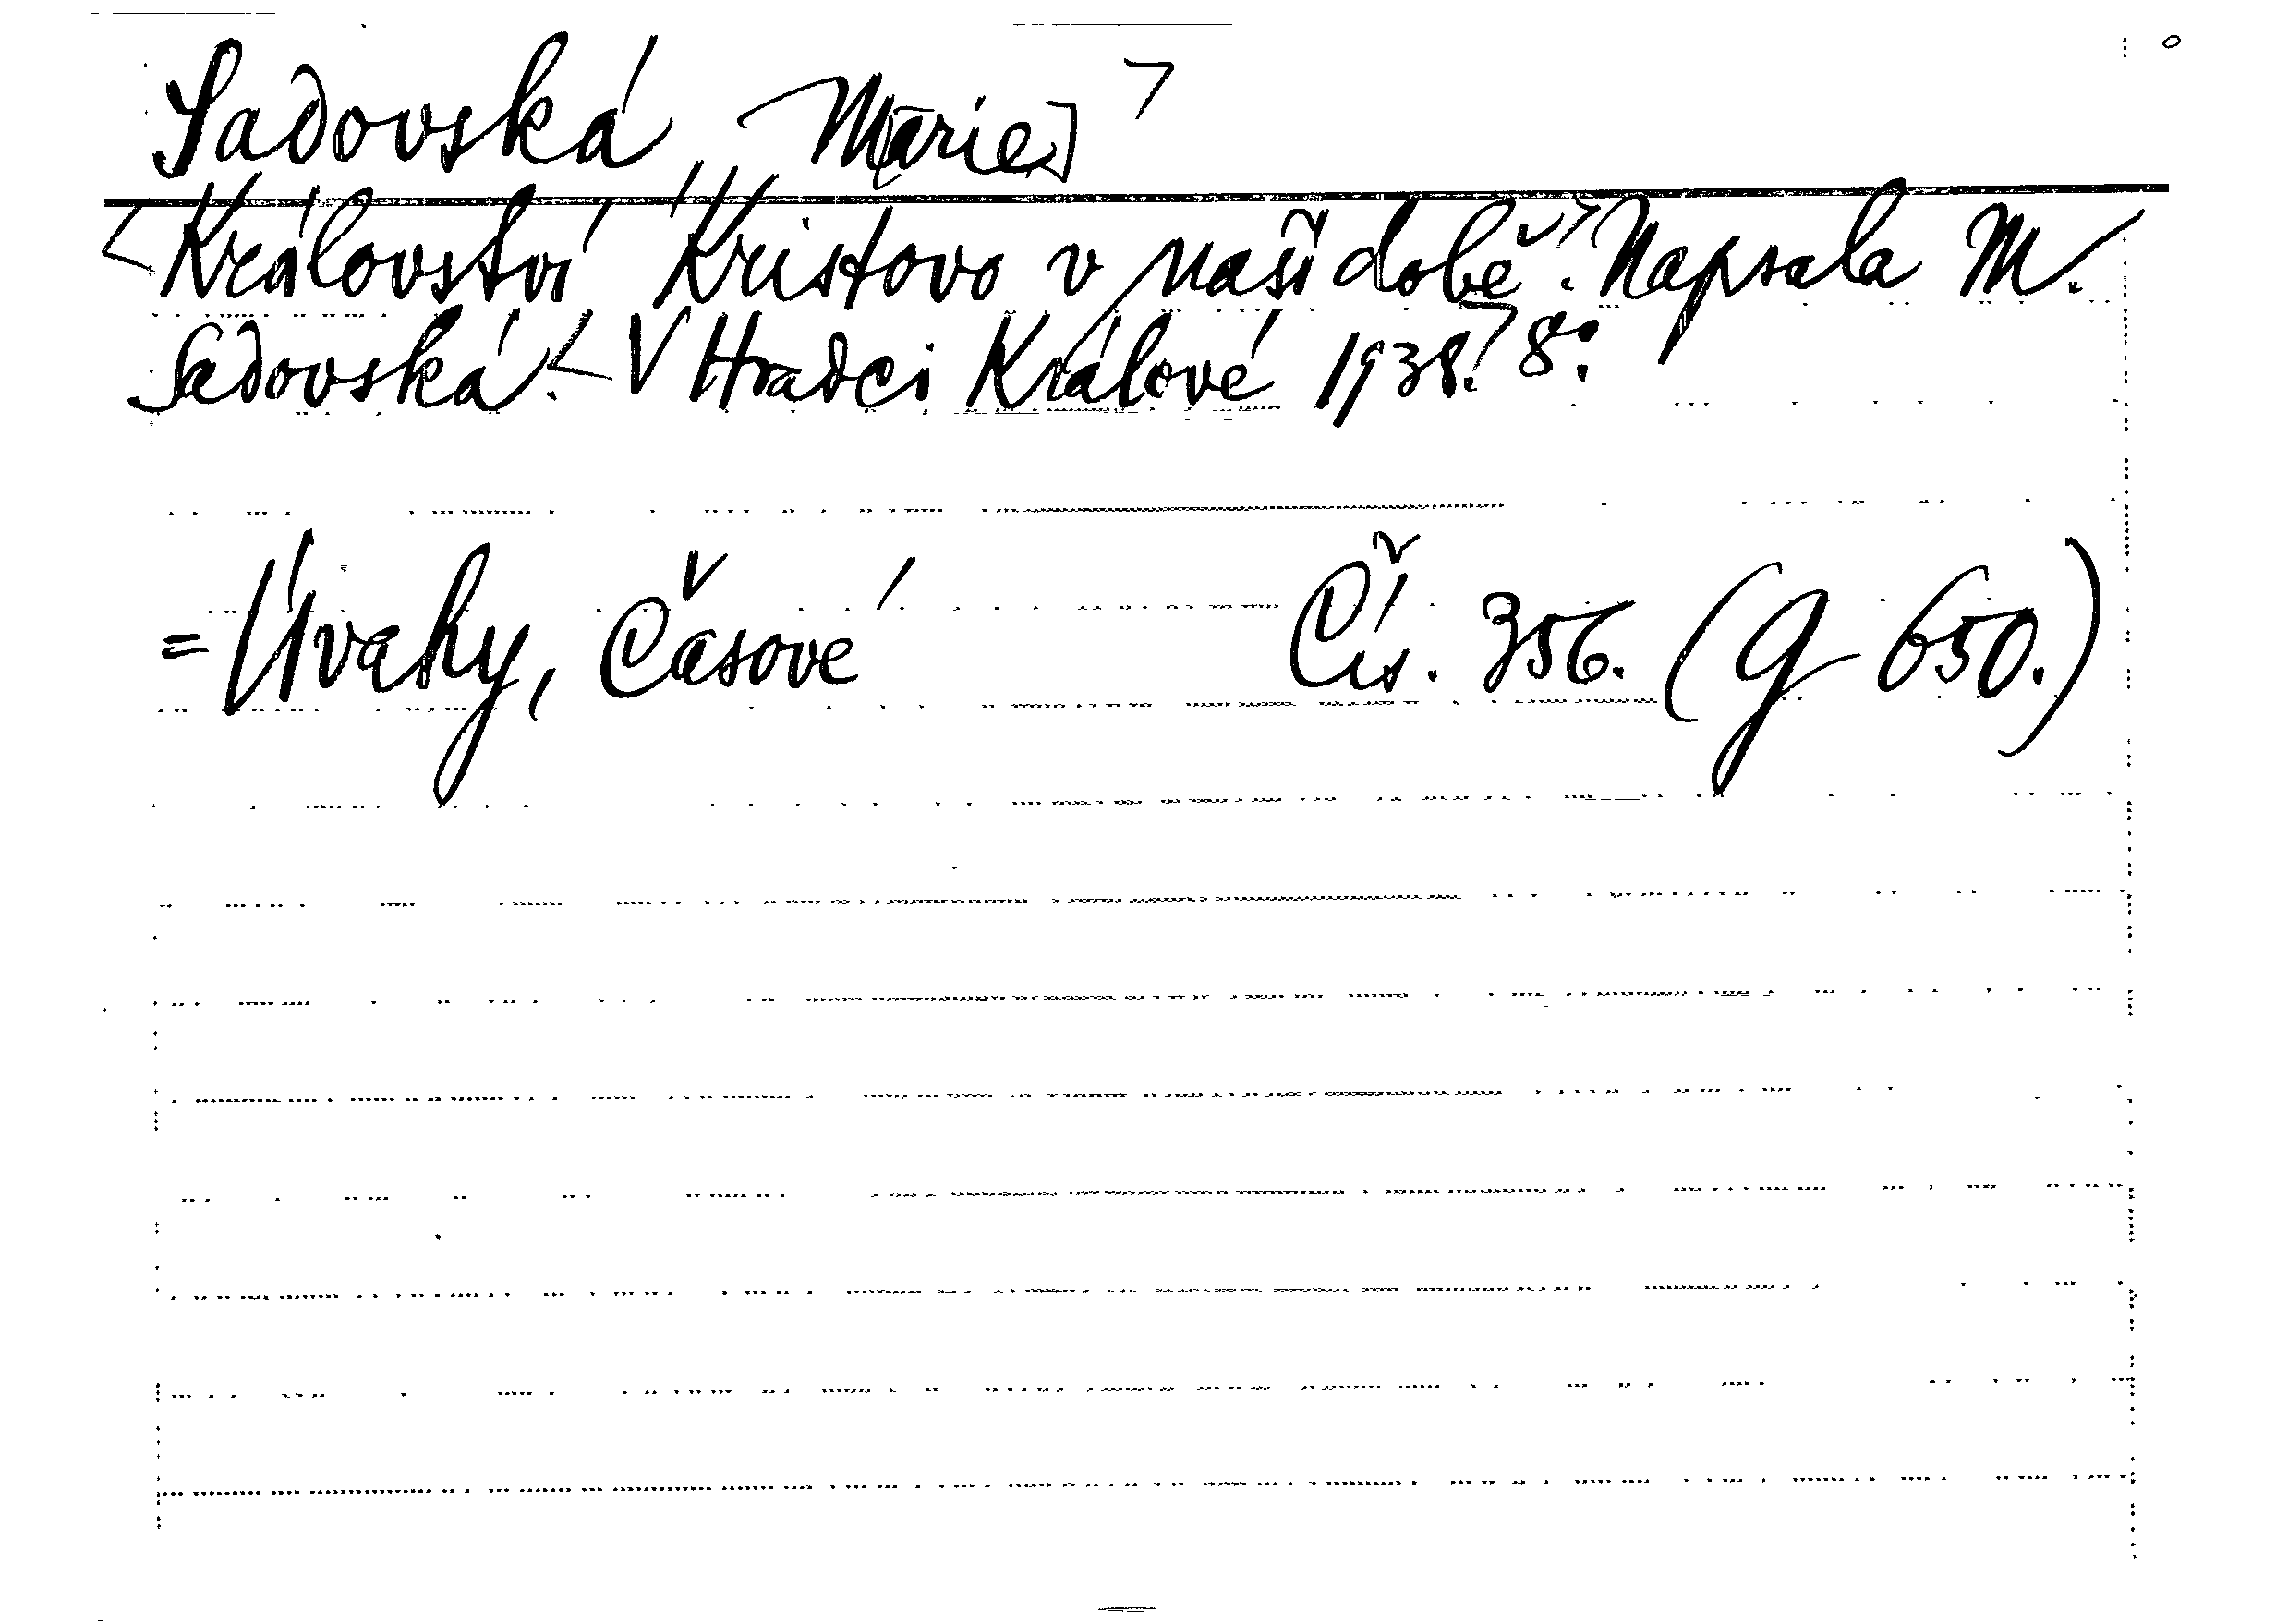 Sadovská, M[arie]
<Království Kristovo v naší době.> Napsala M.
Sadovská. <V Hradci Králové 1938.> 8°.
= Úvahy, Časové Čís. 356. (g 650.)